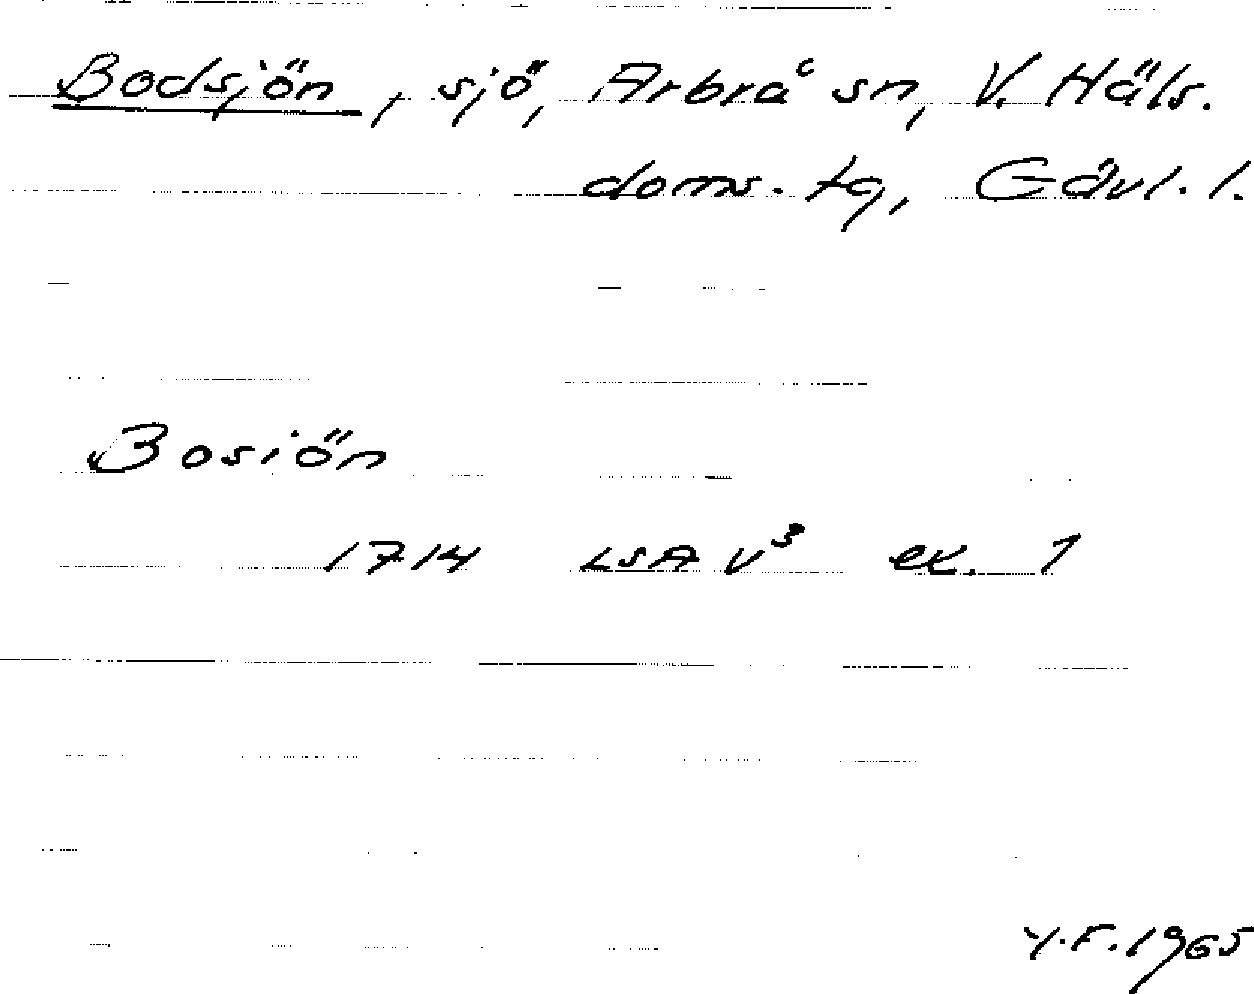 Bodsjön, sjö, Arbrå sn, V. Häls.
doms. tg, Gävl. l.
Bosiön
1714 LSA V³ ex. 1
Y.F. 1965